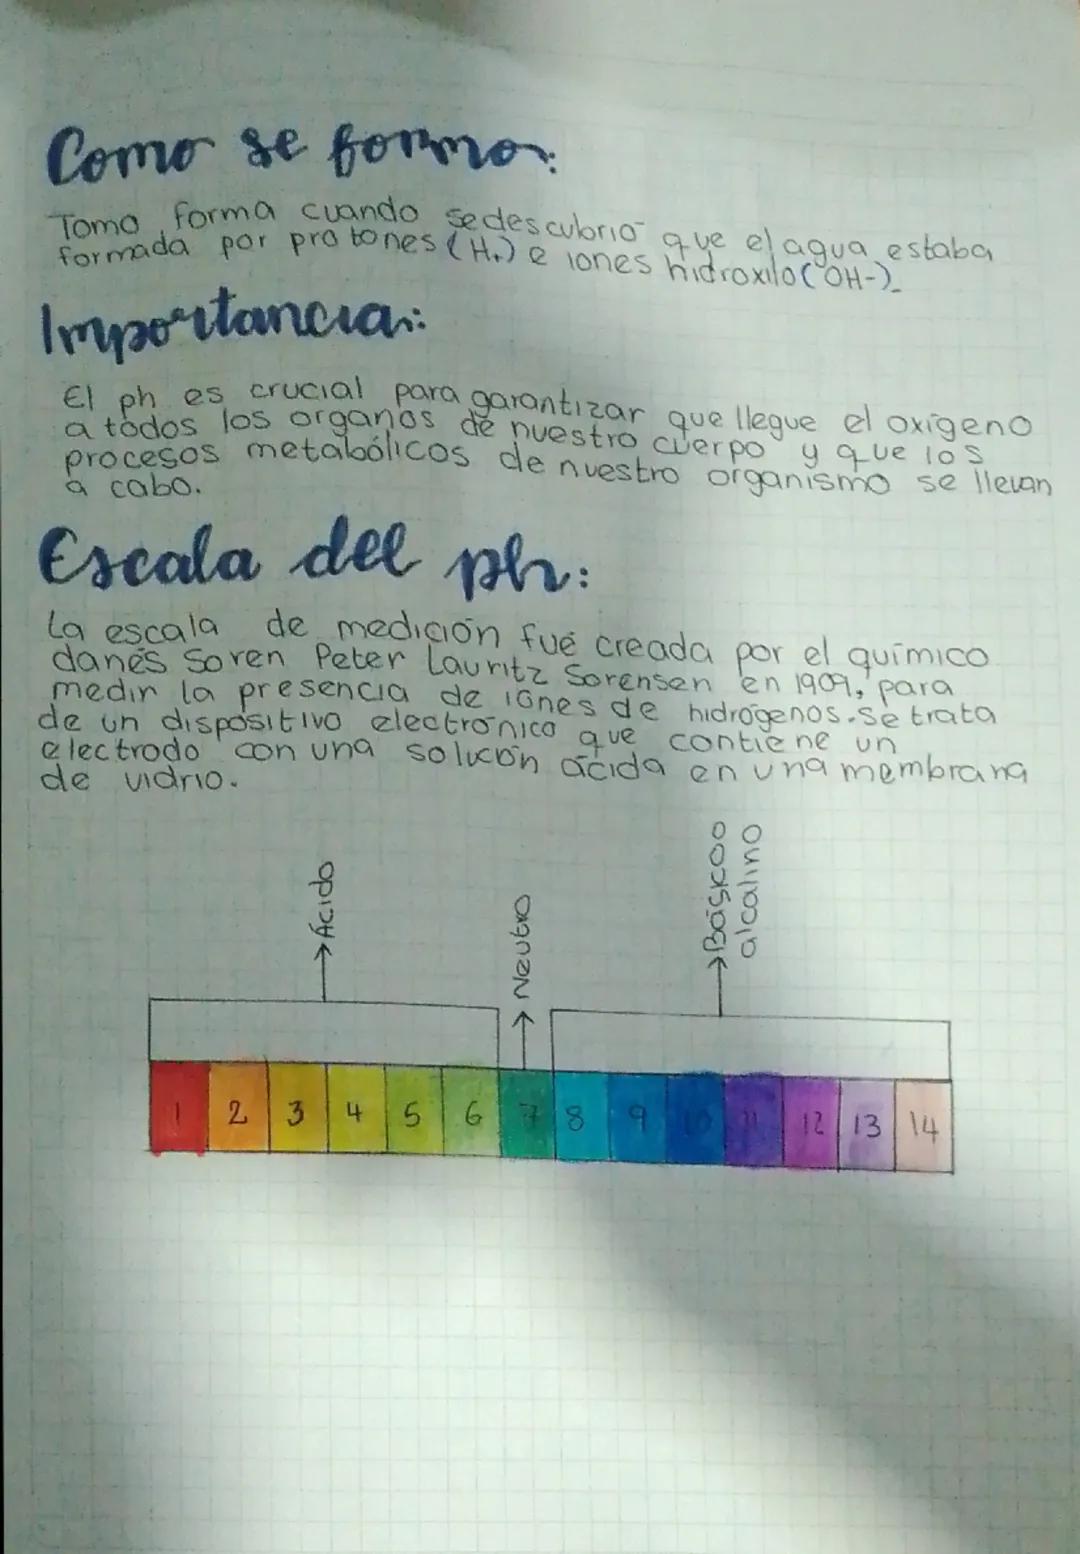 Como se formo:
Tomo forma cuando se descubrio que el agua estaba
formada por protones (H+) e iones hidroxilo (OH-)
Importancia:
El ph es crucial para garantizar que llegue el oxígeno
a todos los organos de nuestro cuerpo y que los
procesos metabólicos de nuestro organismo se llevan
a cabo.
Escala del ph:
La escala de medición fué creada por el químico
danés Soren Peter Lauritz Sorensen en 1909, para
medir la presencia de iones de hidrógenos. Se trata
de un dispositivo electrónico que contiene un
electrodo con una solución ácida en una membrana
de vidrio.
Ácido
Neutro
Básico o
alcalino
1 2 3 4 5 6 7 8 9 10 11 12 13 14